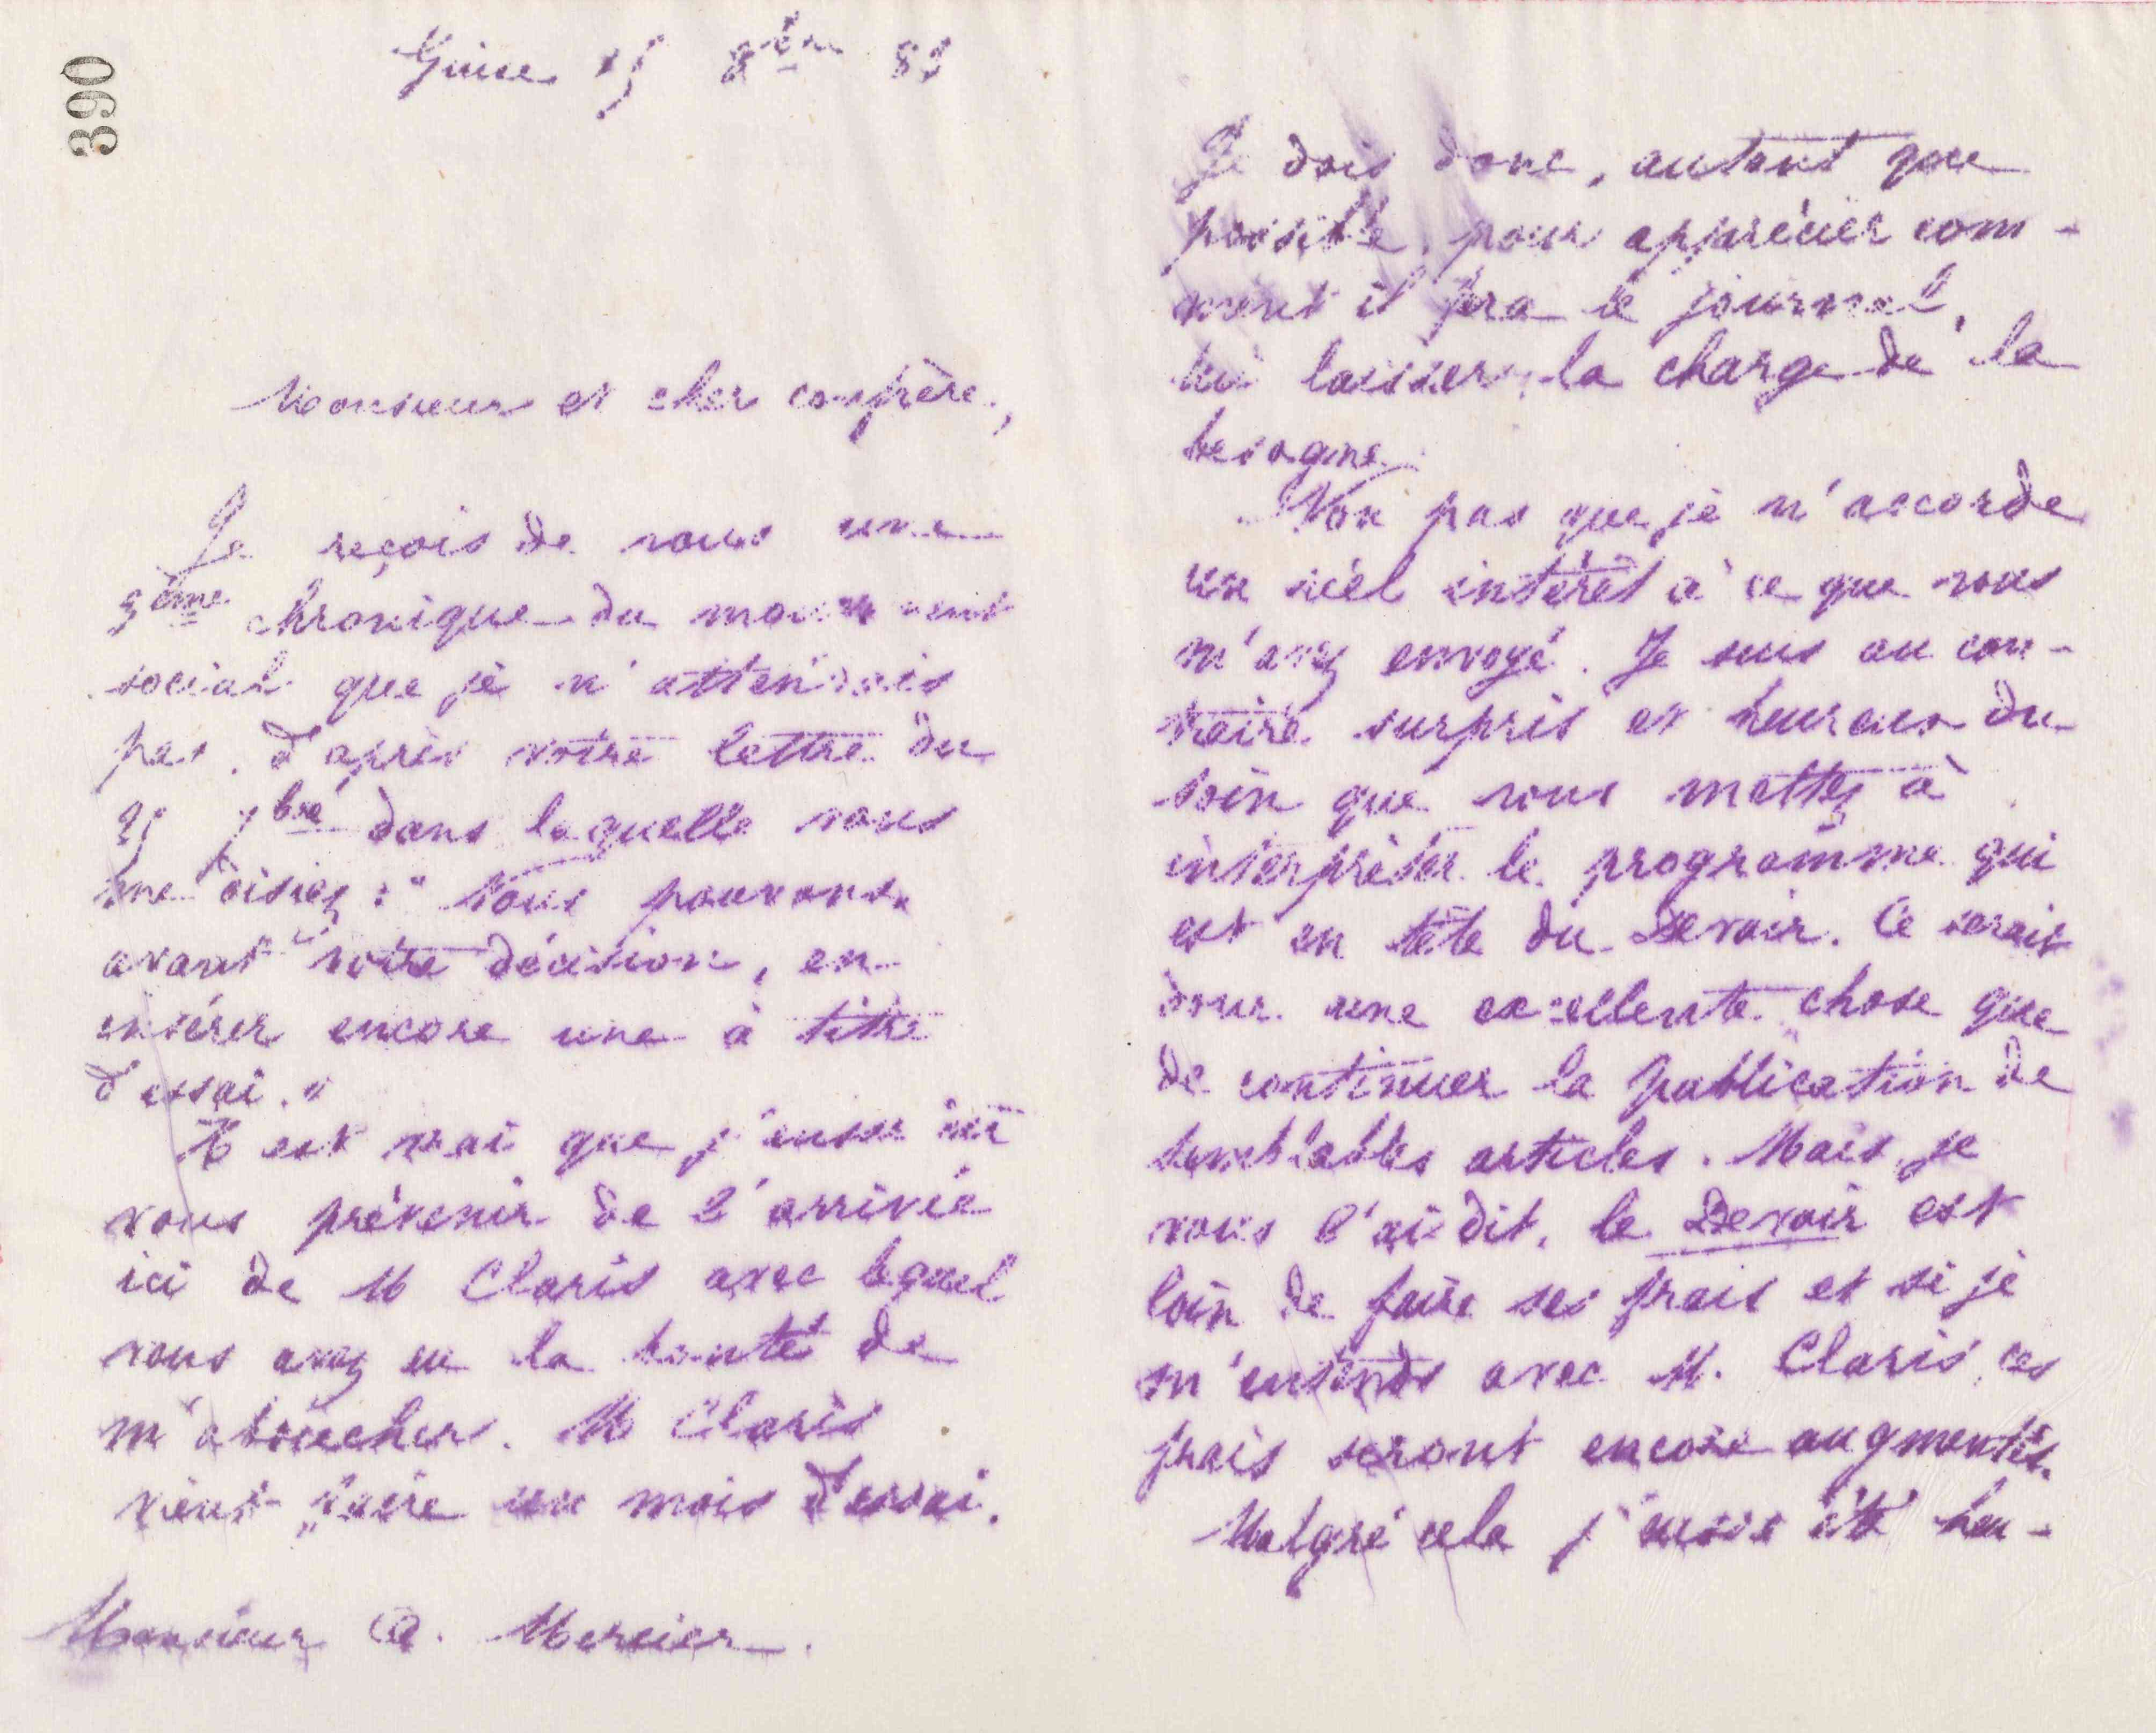 390
Guise 15 8bre 81
Monsieur et cher confrère,
Je reçois de vous une
3ème chronique du mouvement
social que je n'attendais
pas, d'après votre lettre du
25 7bre dans laquelle vous
me disiez : " Nous pouvons,
avant votre décision, en
insérer encore une à titre
d'essai. "
Il est vrai que j'eusse dû
vous prévenir de l'arrivée
ici de M Claris avec lequel
vous avez eu la bonté de
m'aboucher. M Claris
vient faire un mois d'essai.
Monsieur A. Mercier.
Je dois donc, autant que
possible, pour apprécier com-
ment il fera le journal,
lui laisser la charge de la
besogne.
Non pas que je n'accorde
un réel intérêt à ce que vous
m'avez envoyé. Je suis au con-
traire surpris et heureux du
soin que vous mettez à
interpréter le programme qui
est en tête du Devoir. Ce serait
donc une excellente chose que
de continuer la publication de
semblables articles. Mais, je
vous l'ai dit, le Devoir est
loin de faire ses frais et si je
m'entends avec M. Claris, ces
frais seront encore augmentés.
Malgré cela j'eusse été heu-